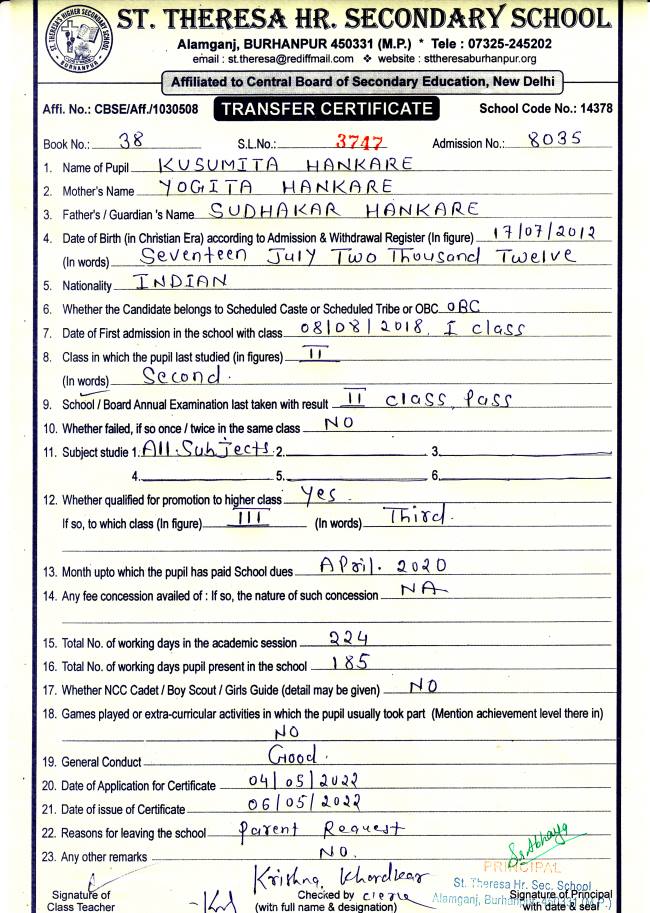 ST. THERESA'S HIGHER SECONDARY SCHOOL
BURHANPUR
ST. THERESA HR. SECONDARY SCHOOL
Alamganj, BURHANPUR 450331 (M.P.) * Tele : 07325-245202
email : st.theresa@rediffmail.com ❖ website : sttheresaburhanpur.org
Affiliated to Central Board of Secondary Education, New Delhi
Affi. No.: CBSE/Aff./1030508 TRANSFER CERTIFICATE School Code No.: 14378
Book No.: 38 S.L.No.: 3747 Admission No.: 8035
1. Name of Pupil KUSUMITA HANKARE
2. Mother's Name YOGITA HANKARE
3. Father's / Guardian 's Name SUDHAKAR HANKARE
4. Date of Birth (in Christian Era) according to Admission & Withdrawal Register (In figure) 17/07/2012
(In words) Seventeen July Two Thousand Twelve
5. Nationality INDIAN
6. Whether the Candidate belongs to Scheduled Caste or Scheduled Tribe or OBC OBC
7. Date of First admission in the school with class 08/08/2018, I class
8. Class in which the pupil last studied (in figures) II
(In words) Second.
9. School / Board Annual Examination last taken with result II class, Pass
10. Whether failed, if so once / twice in the same class NO
11. Subject studie 1. All Subjects 2. 3.
4. 5. 6.
12. Whether qualified for promotion to higher class Yes
If so, to which class (In figure) III (In words) Third.
13. Month upto which the pupil has paid School dues April. 2020
14. Any fee concession availed of : If so, the nature of such concession NA
15. Total No. of working days in the academic session 224
16. Total No. of working days pupil present in the school 185
17. Whether NCC Cadet / Boy Scout / Girls Guide (detail may be given) NO
18. Games played or extra-curricular activities in which the pupil usually took part (Mention achievement level there in)
NO
19. General Conduct Good.
20. Date of Application for Certificate 04/05/2022
21. Date of issue of Certificate 06/05/2022
22. Reasons for leaving the school Parent Request
23. Any other remarks NO.
Sr Abhaya
PRINCIPAL
St. Theresa Hr. Sec. School
Alamganj, Burhanpur 450331 (M.P.)
Krishna Khardkar
clerk
Signature of Class Teacher
Checked by
(with full name & designation)
Signature of Principal
with date & seal